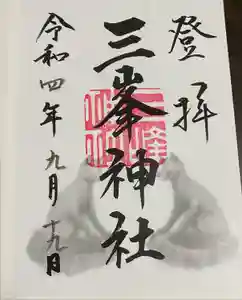 登拝
三峯神社
令和四年 九月十九日